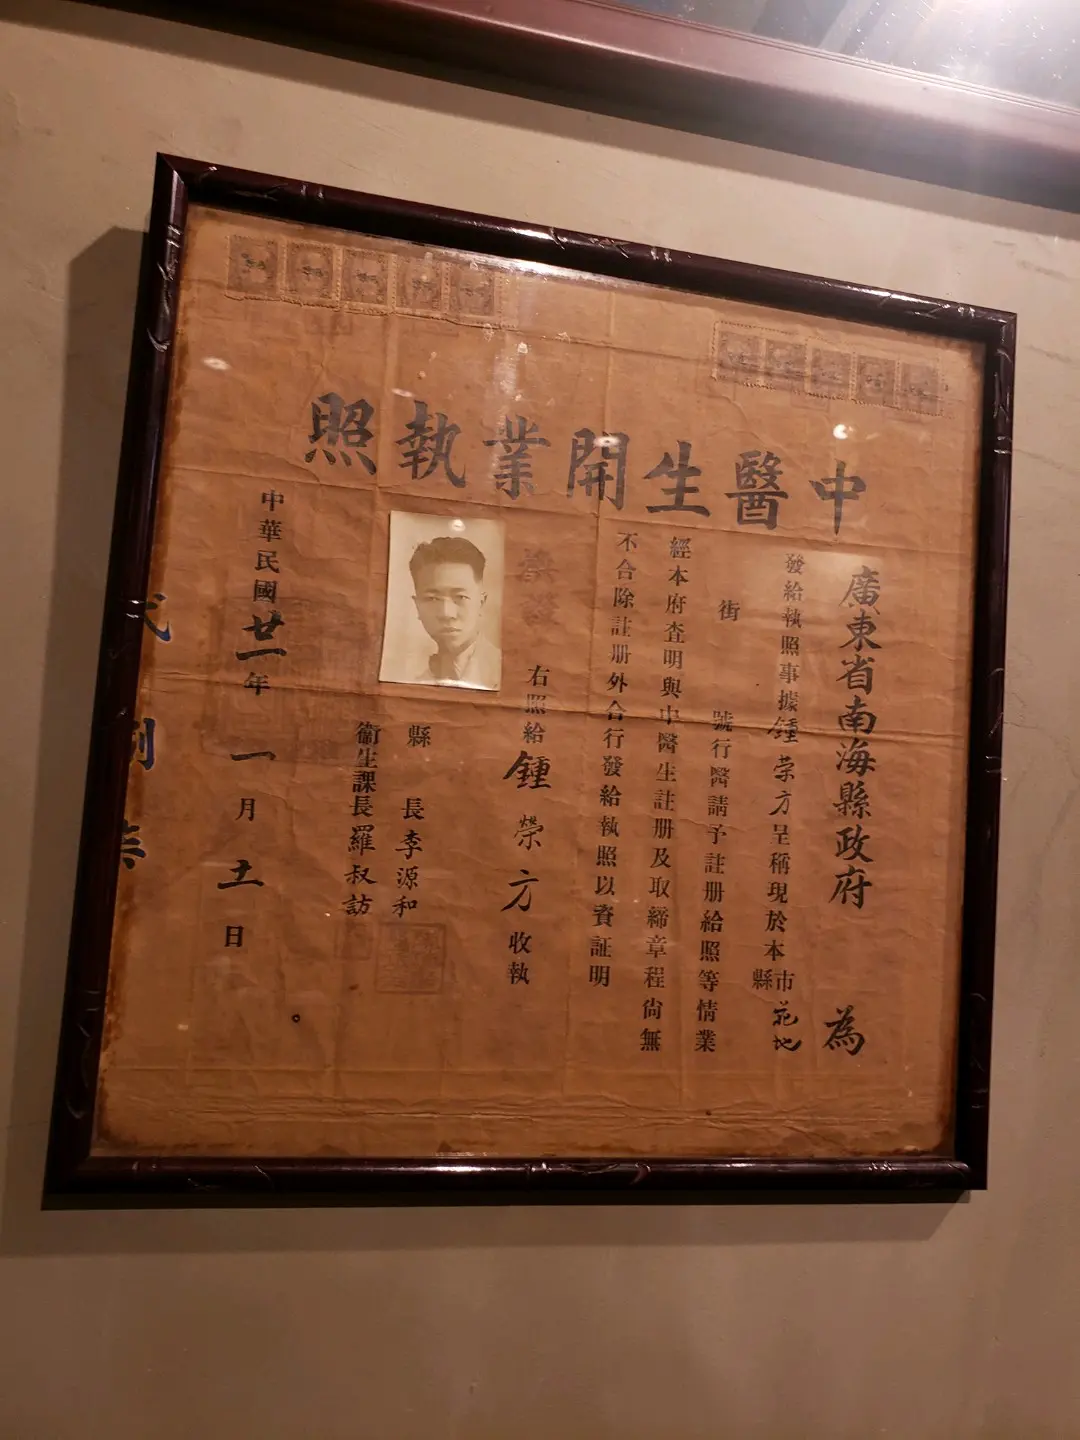 中醫生開業執照
廣東省南海縣政府 為
發給執照事據鍾荣方呈稱現於本市縣花地
街 號行醫請予註册給照等情業
經本府查明與中醫生註册及取締章程尚無
不合除註册外合行發給執照以資証明
右照給鍾榮方收執
縣 長李源和
衞生課長羅叔訪
中華民國廿一年一月十一日